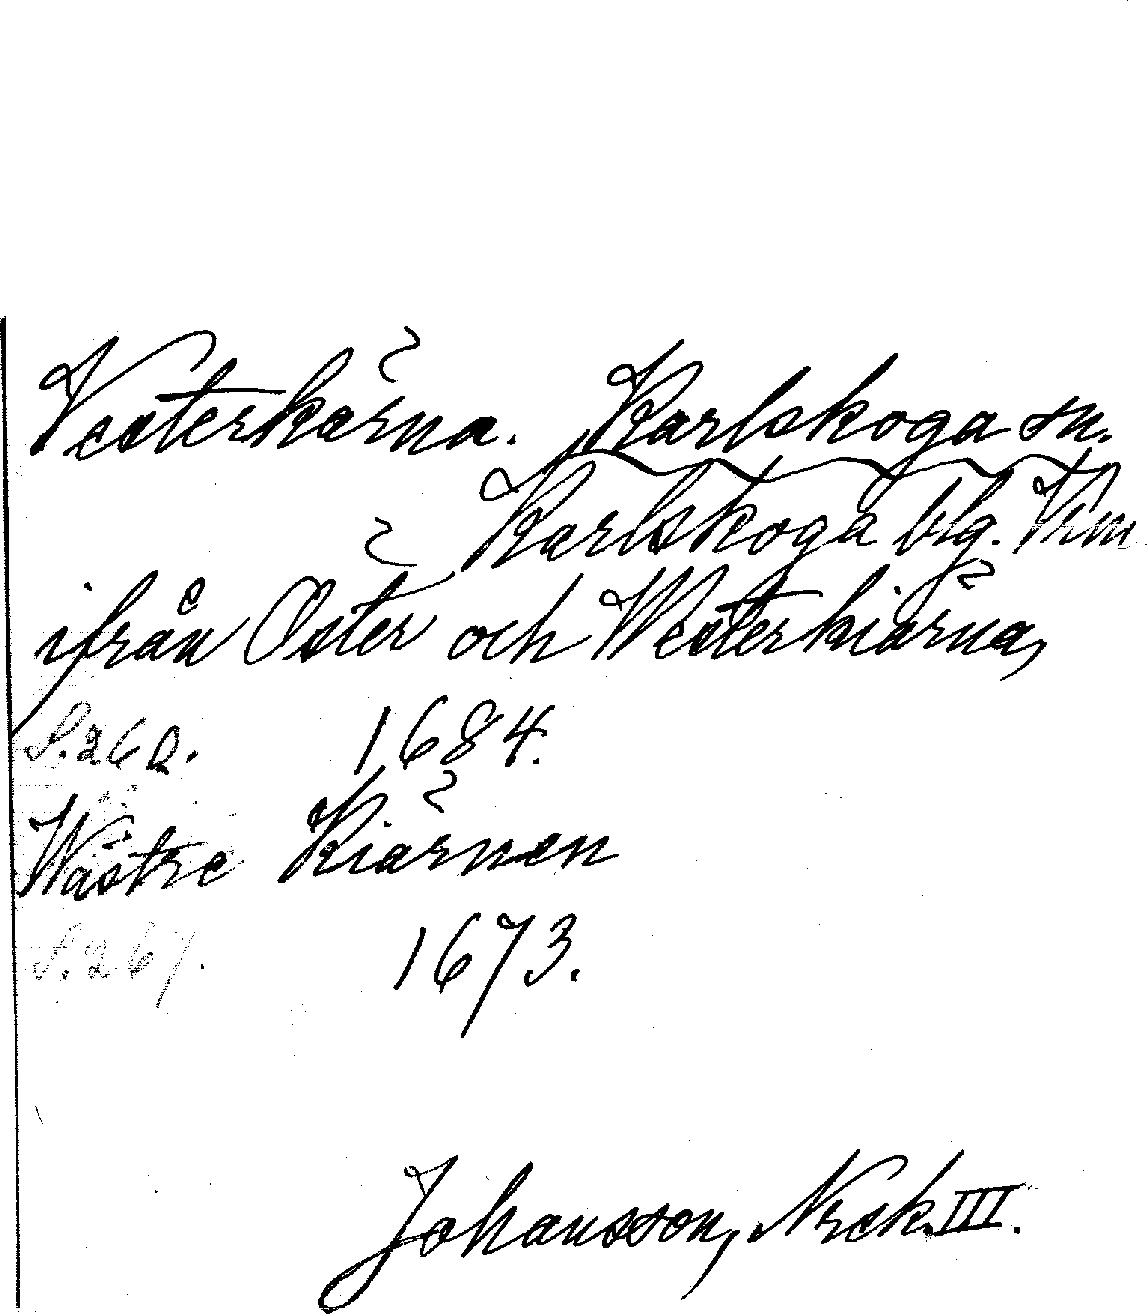 Vesterkärna. Karlskoga sn.
Karlskoga blg. Vrm
ifrån Öster och Westerkiärna,
S. 262. 1684.
Wästre Kiärnen
S. 267. 1673.
Johansson, Nrsk. III.